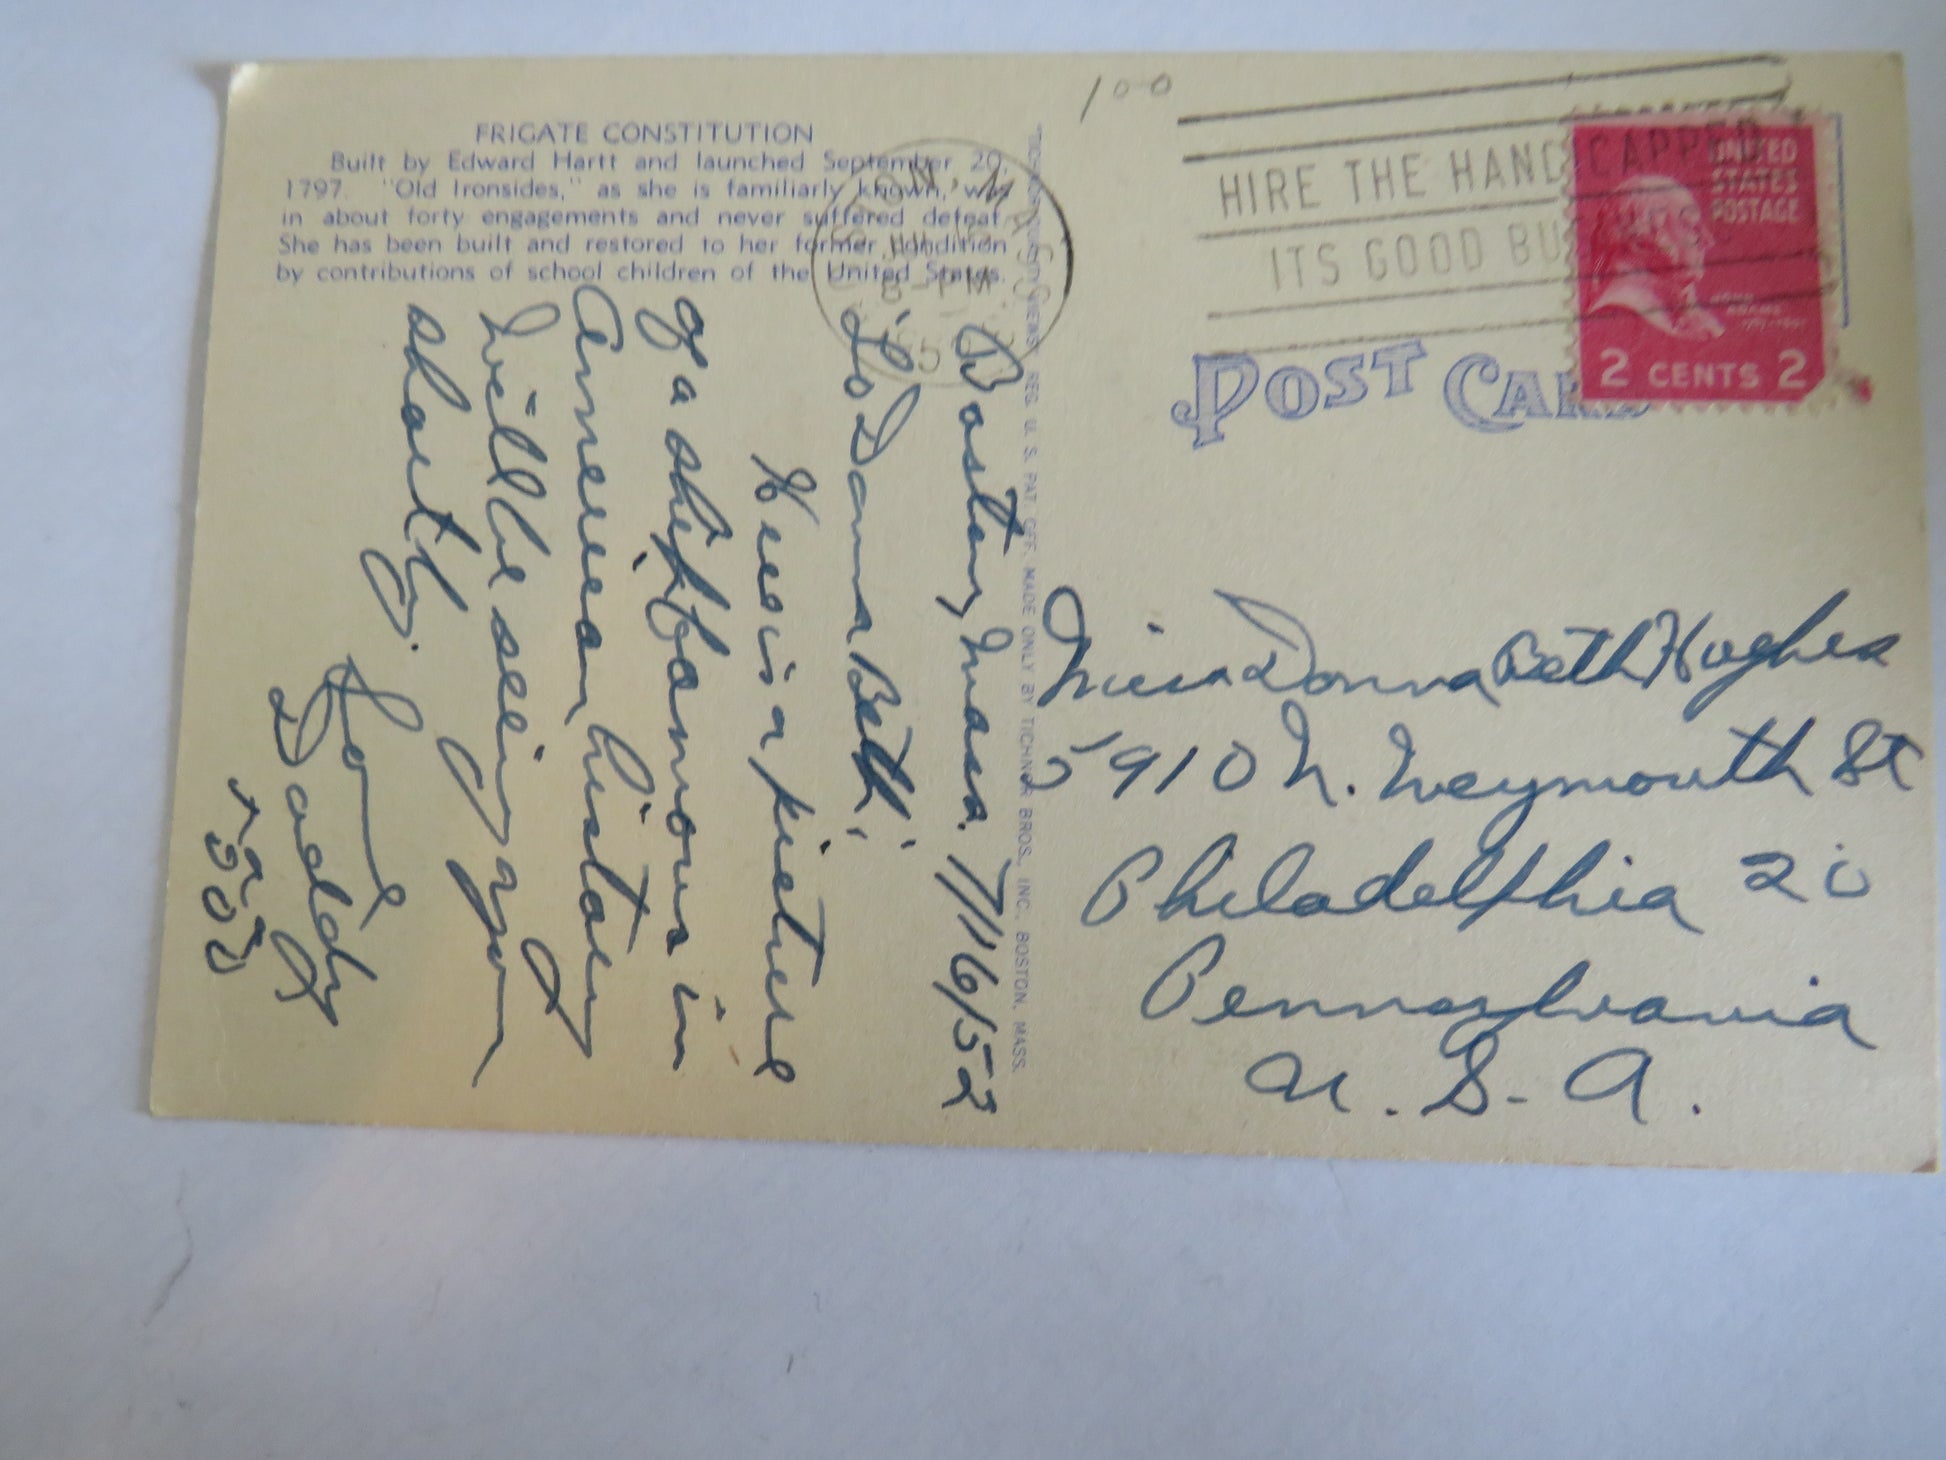 FRIGATE CONSTITUTION
Built by Edward Hartt and launched September 20,
1797. "Old Ironsides," as she is familiarly known, was
in about forty engagements and never suffered defeat.
She has been built and restored to her former condition
by contributions of school children of the United States.
Boston, Mass. 7/16/52
To Donna Beth;
Here is a picture
of a ship famous in
American history
Will be seeing you
shortly.
Love
Daddy
XXX
OOO
"TICHNOR QUALITY VIEWS," REG. U. S. PAT. OFF. MADE ONLY BY TICHNOR BROS., INC., BOSTON, MASS.
100
BOSTON, MASS.
PM
HIRE THE HANDICAPPED
ITS GOOD BUSINESS
UNITED
STATES
POSTAGE
JOHN
ADAMS
2 CENTS 2
POST CARD
Miss Donna Beth Hughes
5910 N. Weymouth St
Philadelphia 20
Pennsylvania
U. S. A.